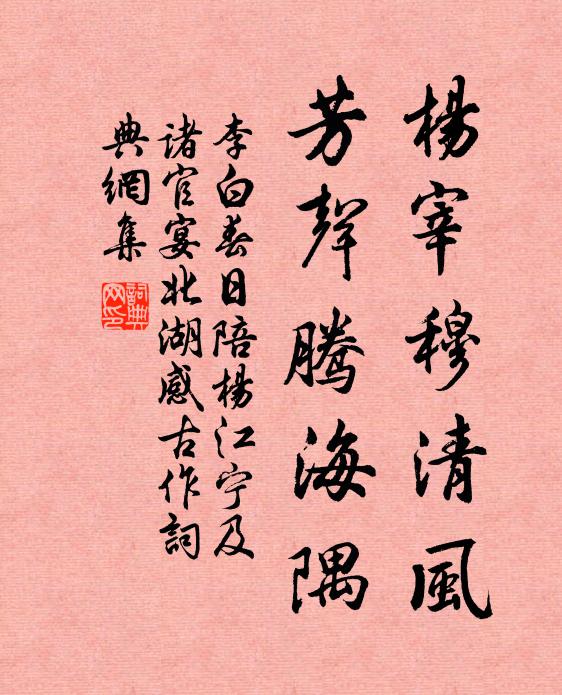 楊宰穆清風
芳聲騰海隅
李白春日陪楊江宁及
諸官宴北湖感古作詞
典網集
詞典网印